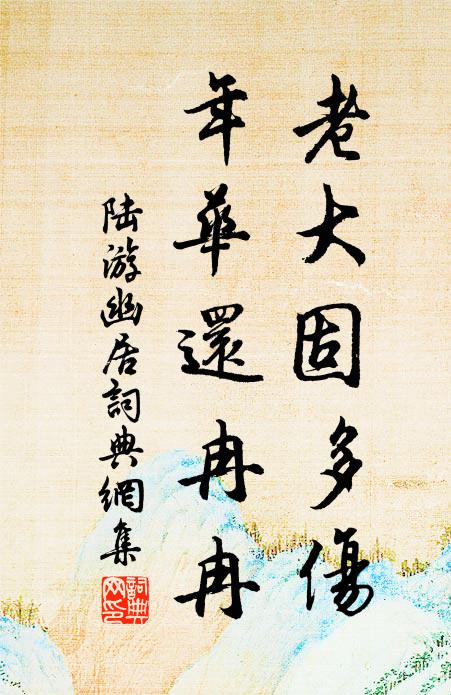 老大固多傷
年華還冉冉
陸游幽居詞典網集
詞典網印